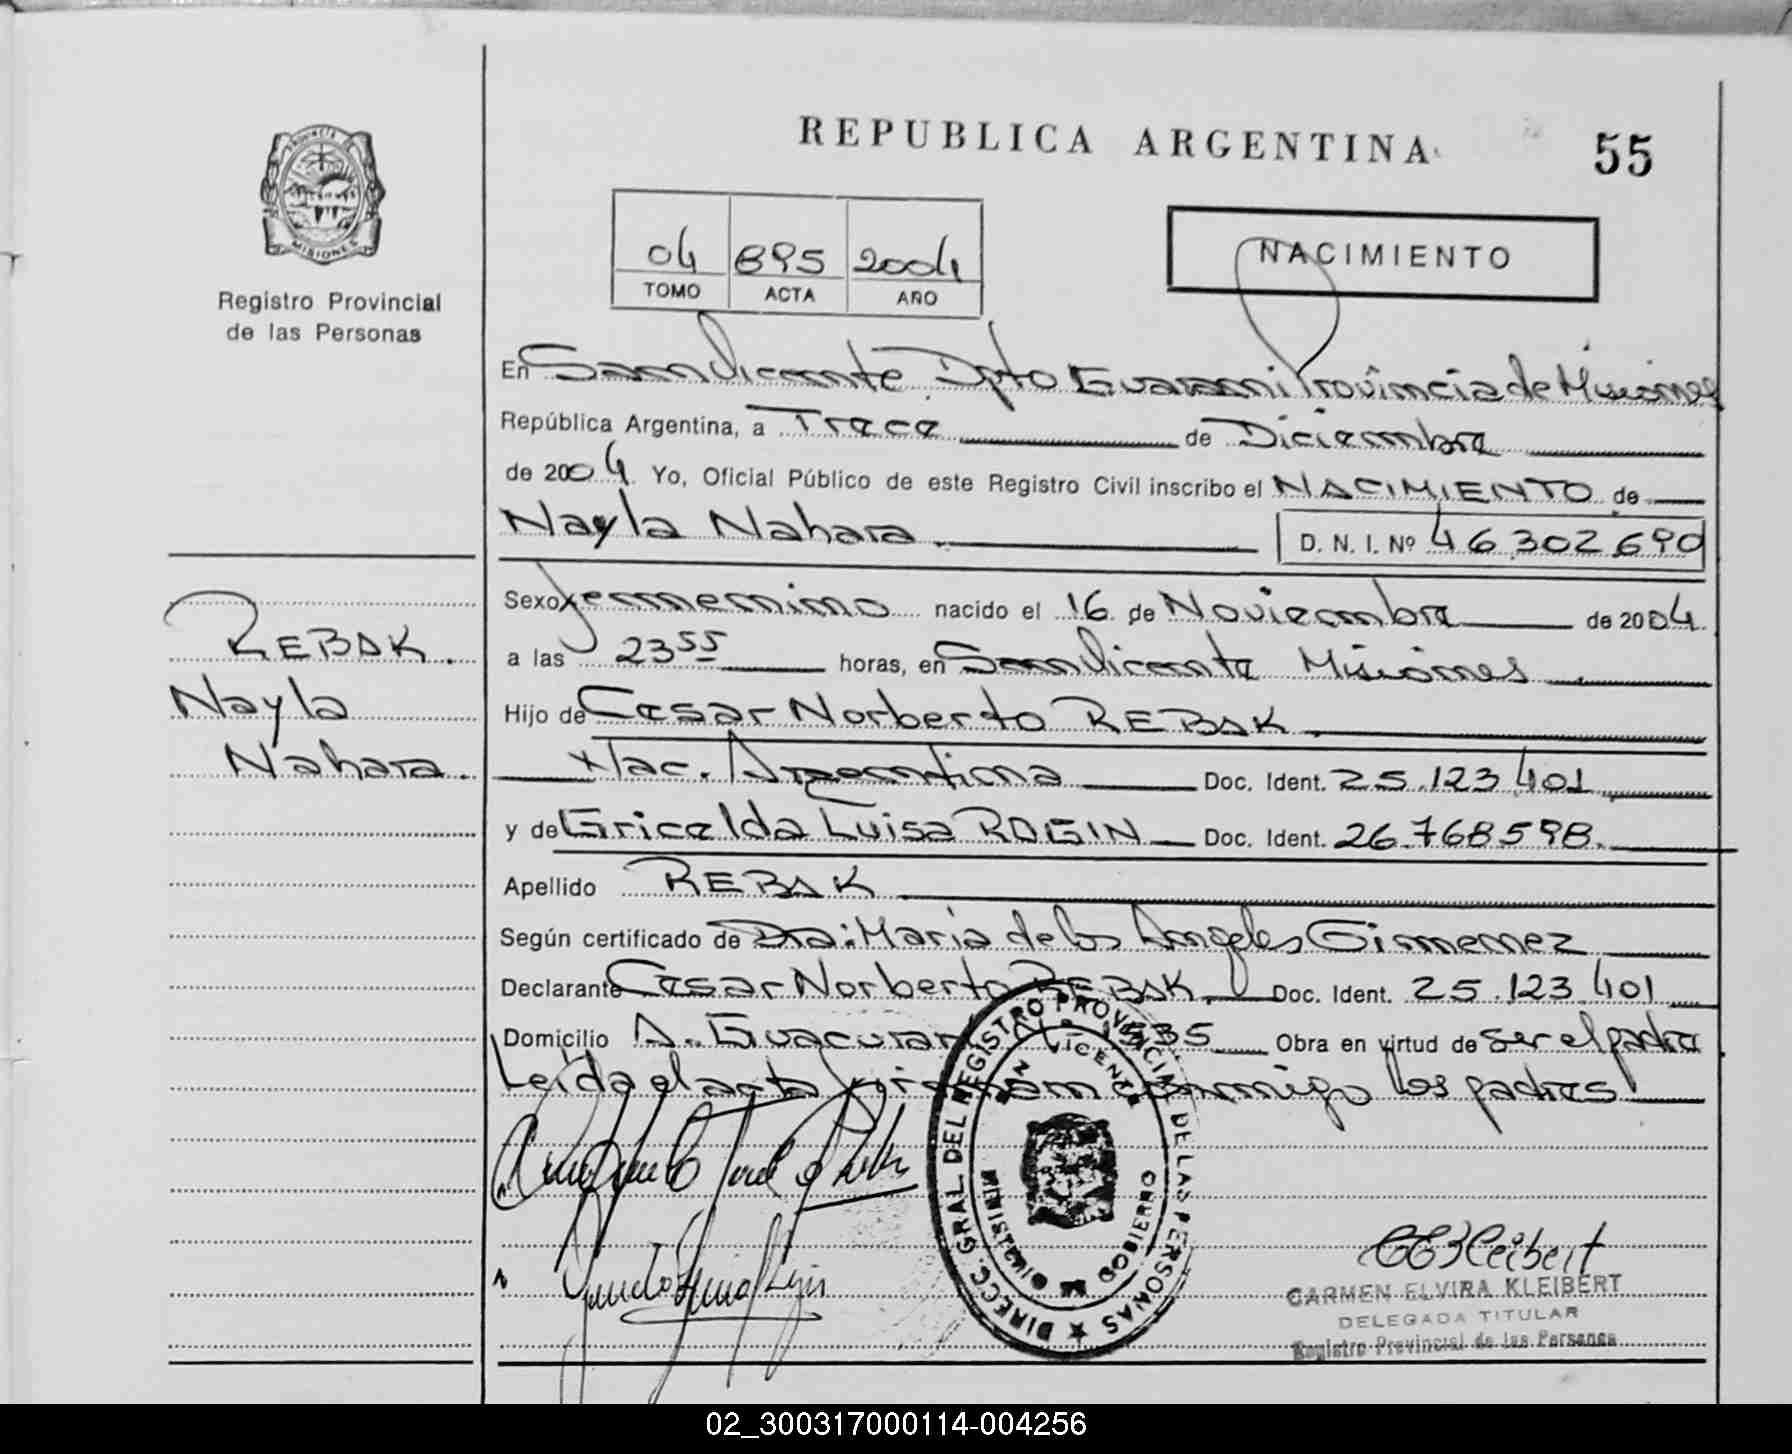 REPUBLICA ARGENTINA
55
PROVINCIA
MISIONES
Registro Provincial
de las Personas
04 895 2004
TOMO ACTA AÑO
NACIMIENTO
En San Vicente Dpto Guarani Provincia de Misiones
República Argentina, a Trece de Diciembre
de 2004 Yo, Oficial Público de este Registro Civil inscribo el NACIMIENTO de
Nayla Nahara D. N. I. Nº 46.302.690
Sexo femenino nacido el 16 de Noviembre de 2004
a las 23 55 horas, en San Vicente Misiones
Hijo de Cesar Norberto REBAK
Nac. Argentina Doc. Ident. 25.123.401
y de Gricelda Luisa ROGIN Doc. Ident. 26.768.598.
Apellido REBAK
Según certificado de Dra: Maria de los Angeles Gimenez
Declarante Cesar Norberto REBAK. Doc. Ident. 25.123.401
Domicilio A. Guacurari 535 Obra en virtud de ser el padre
Leida el acta firman conmigo los padres
REBAK.
Nayla
Nahara.
DIRECC. GRAL DEL REGISTRO PROVINCIAL DE LAS PERSONAS
SAN VICENTE
MINISTERIO DE GOBIERNO
CEKleibert
CARMEN ELVIRA KLEIBERT
DELEGADA TITULAR
Registro Provincial de las Personas
02_300317000114-004256